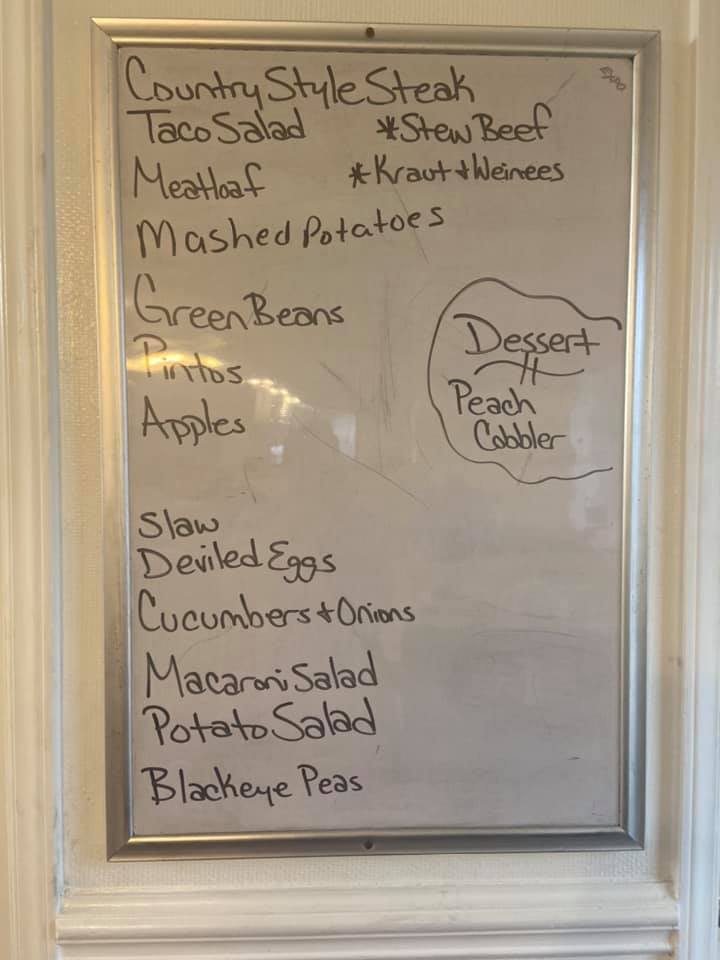 Country Style Steak
Taco Salad *Stew Beef
Meatloaf *Kraut + Weinees
Mashed Potatoes
Green Beans
Pintos
Apples
Dessert
Peach
Cobbler
Slaw
Deviled Eggs
Cucumbers + Onions
Macaroni Salad
Potato Salad
Blackeye Peas